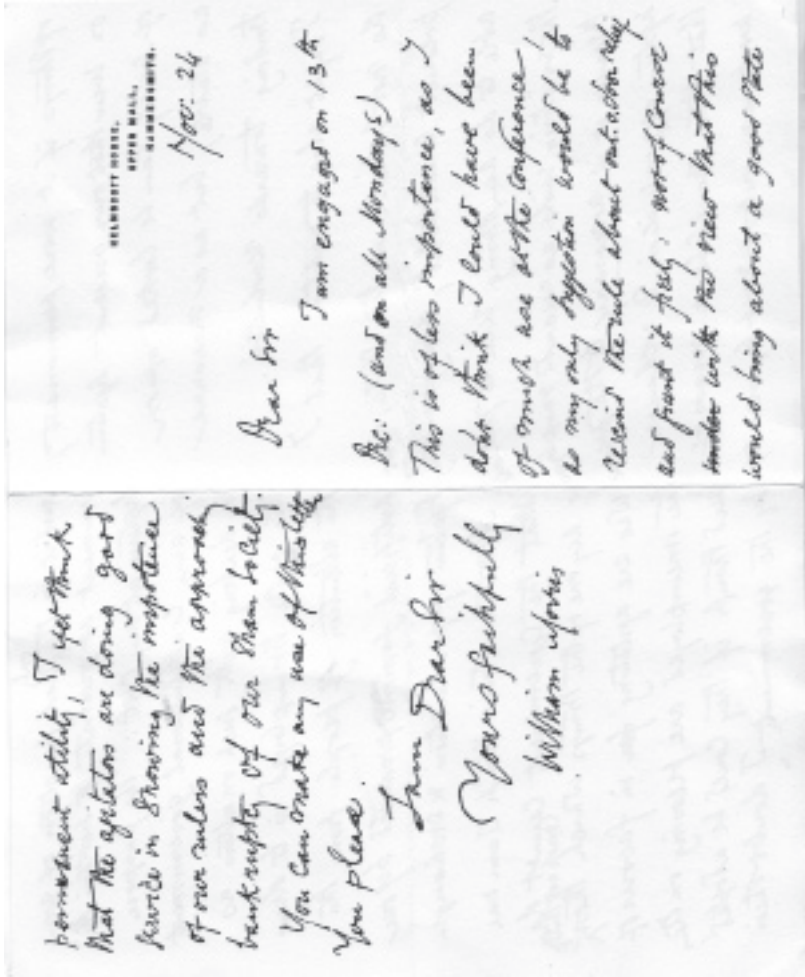 KELMSCOTT HOUSE,
UPPER MALL,
HAMMERSMITH.
Nov: 24
Dear Sir
I am engaged on 13th
Dec: (and on all Mondays)
This is of less importance, as I
dont think I could have been
of much use at the conference!
as my only suggestion would be to
rescind the rule about out.o.door relief
and grant it freely: not of course
with the view that this
would bring about a good state
permanent utility, I yet think
that the agitators are doing good
service in showing the impotence
of our rulers and the approaching
bankruptcy of our Sham Society.
You can make any use of this letter
you please.
I am Dear Sir
Yours faithfully
William Morris